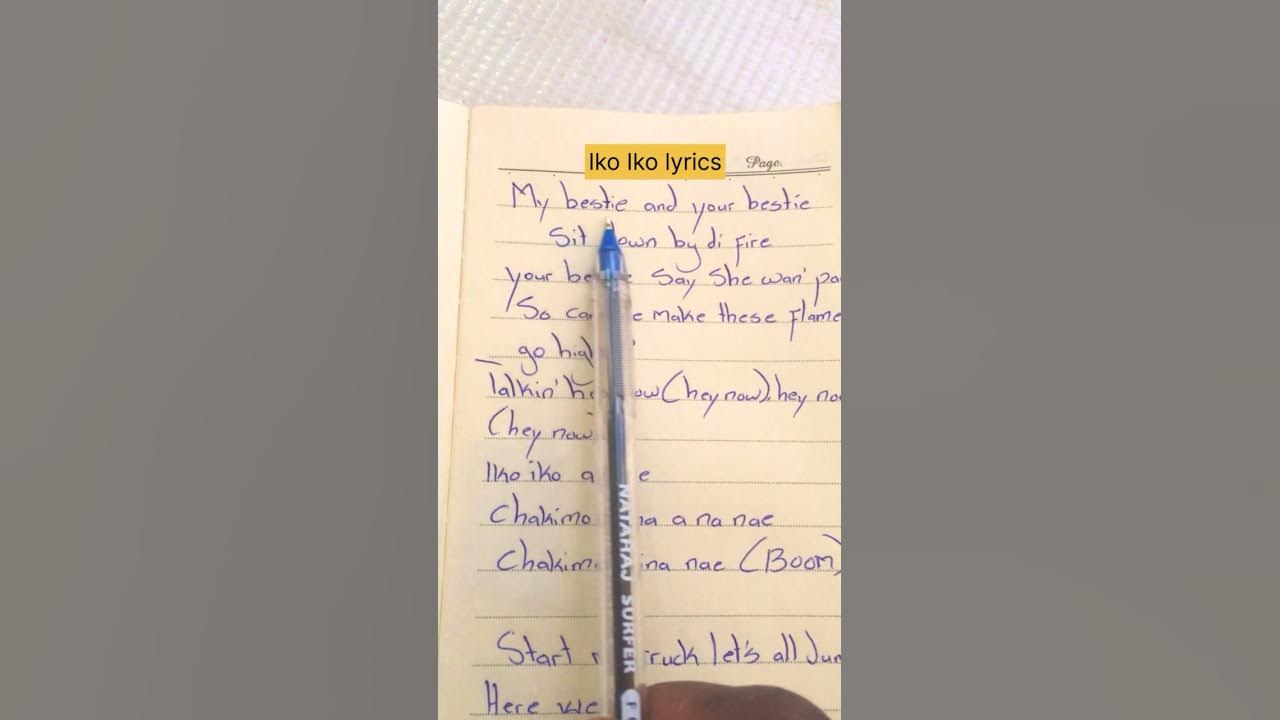 Iko Iko lyrics
Page.
My bestie and your bestie
Sit own by di fire
your be e say she wan' pa
So ca e make these flame
go hig
Talkin' he ow (hey now), hey no
(hey now
Iko iko a e
Chakimo na a na nae
Chakim ina nae (Boom)
Start ruck let's all Jum
Here we
NATARAJ SURFER